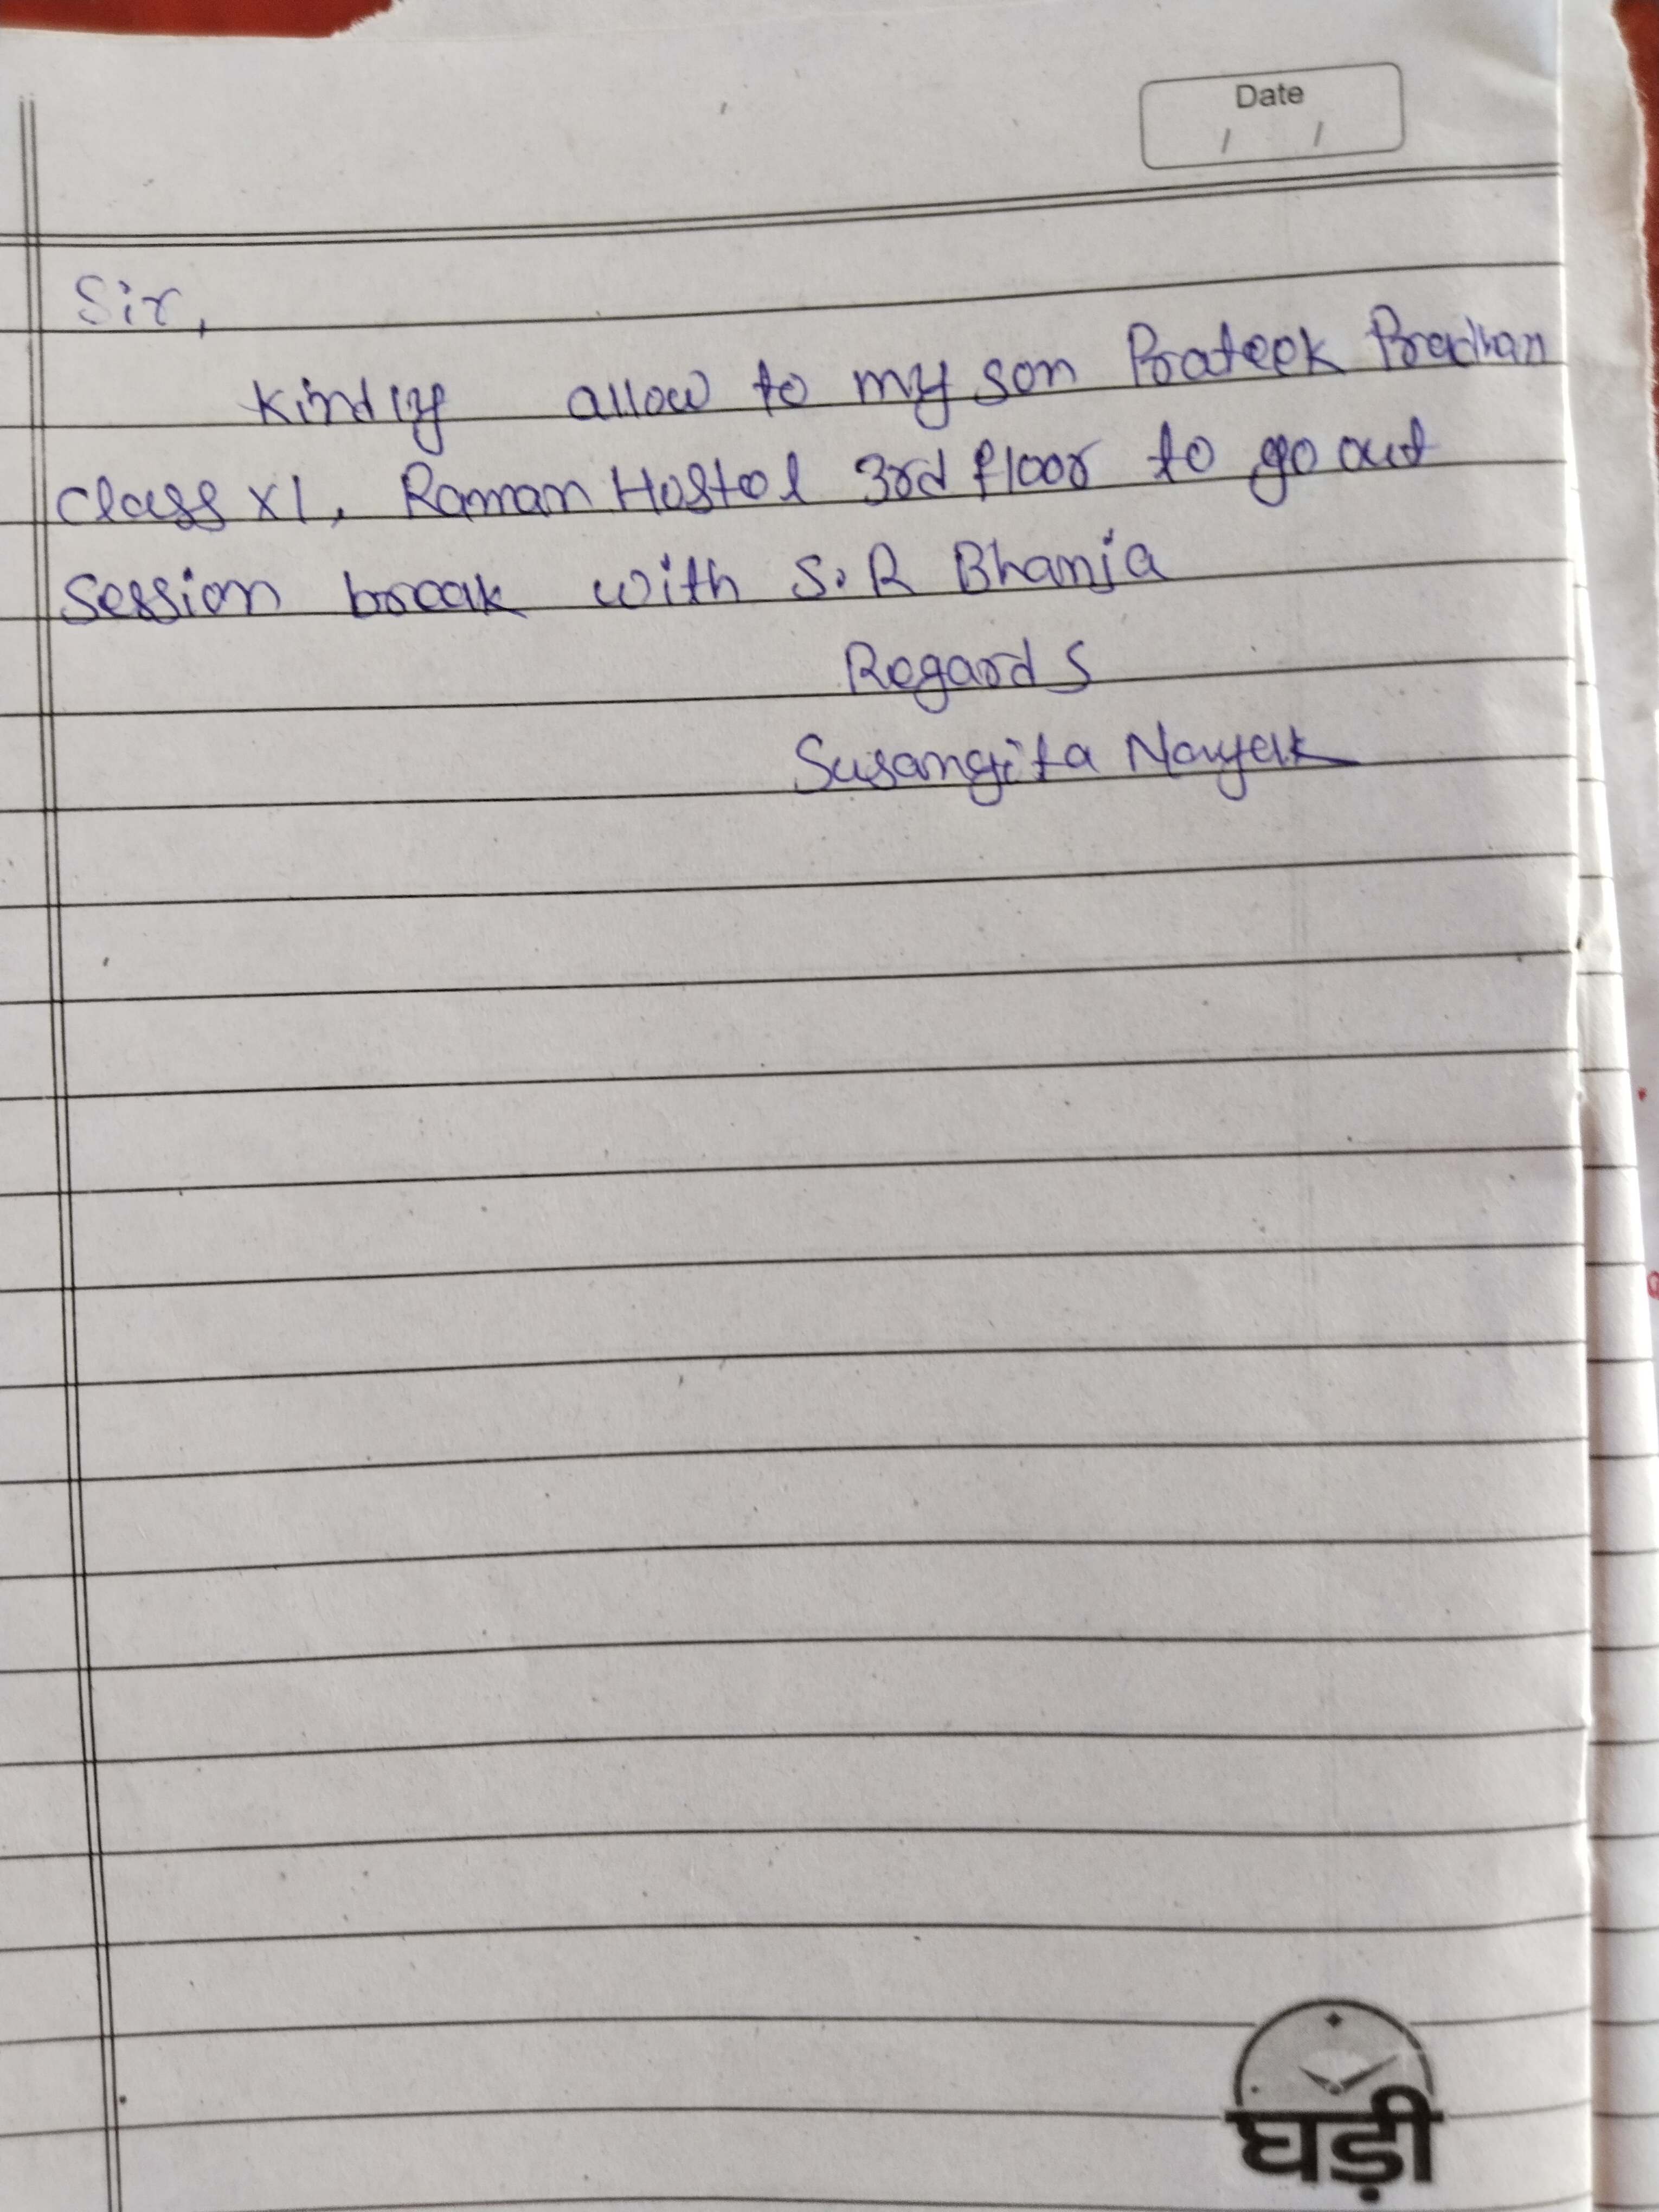 Date
/ /
Sir,
Kindly allow to my son Prateek Pradhan
class XI, Raman Hostel 3rd floor to go out
session break with S.R Bhanja
Regards
Susangita Nayak
घड़ी